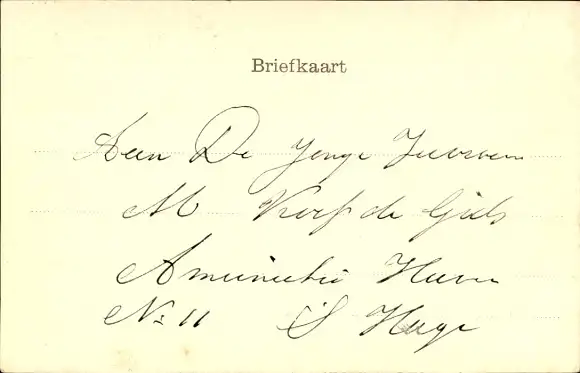 Briefkaart
Aan De Jonge Juvrouw
M Korf de Gids
Amunitie Haven
No 11 S Hage